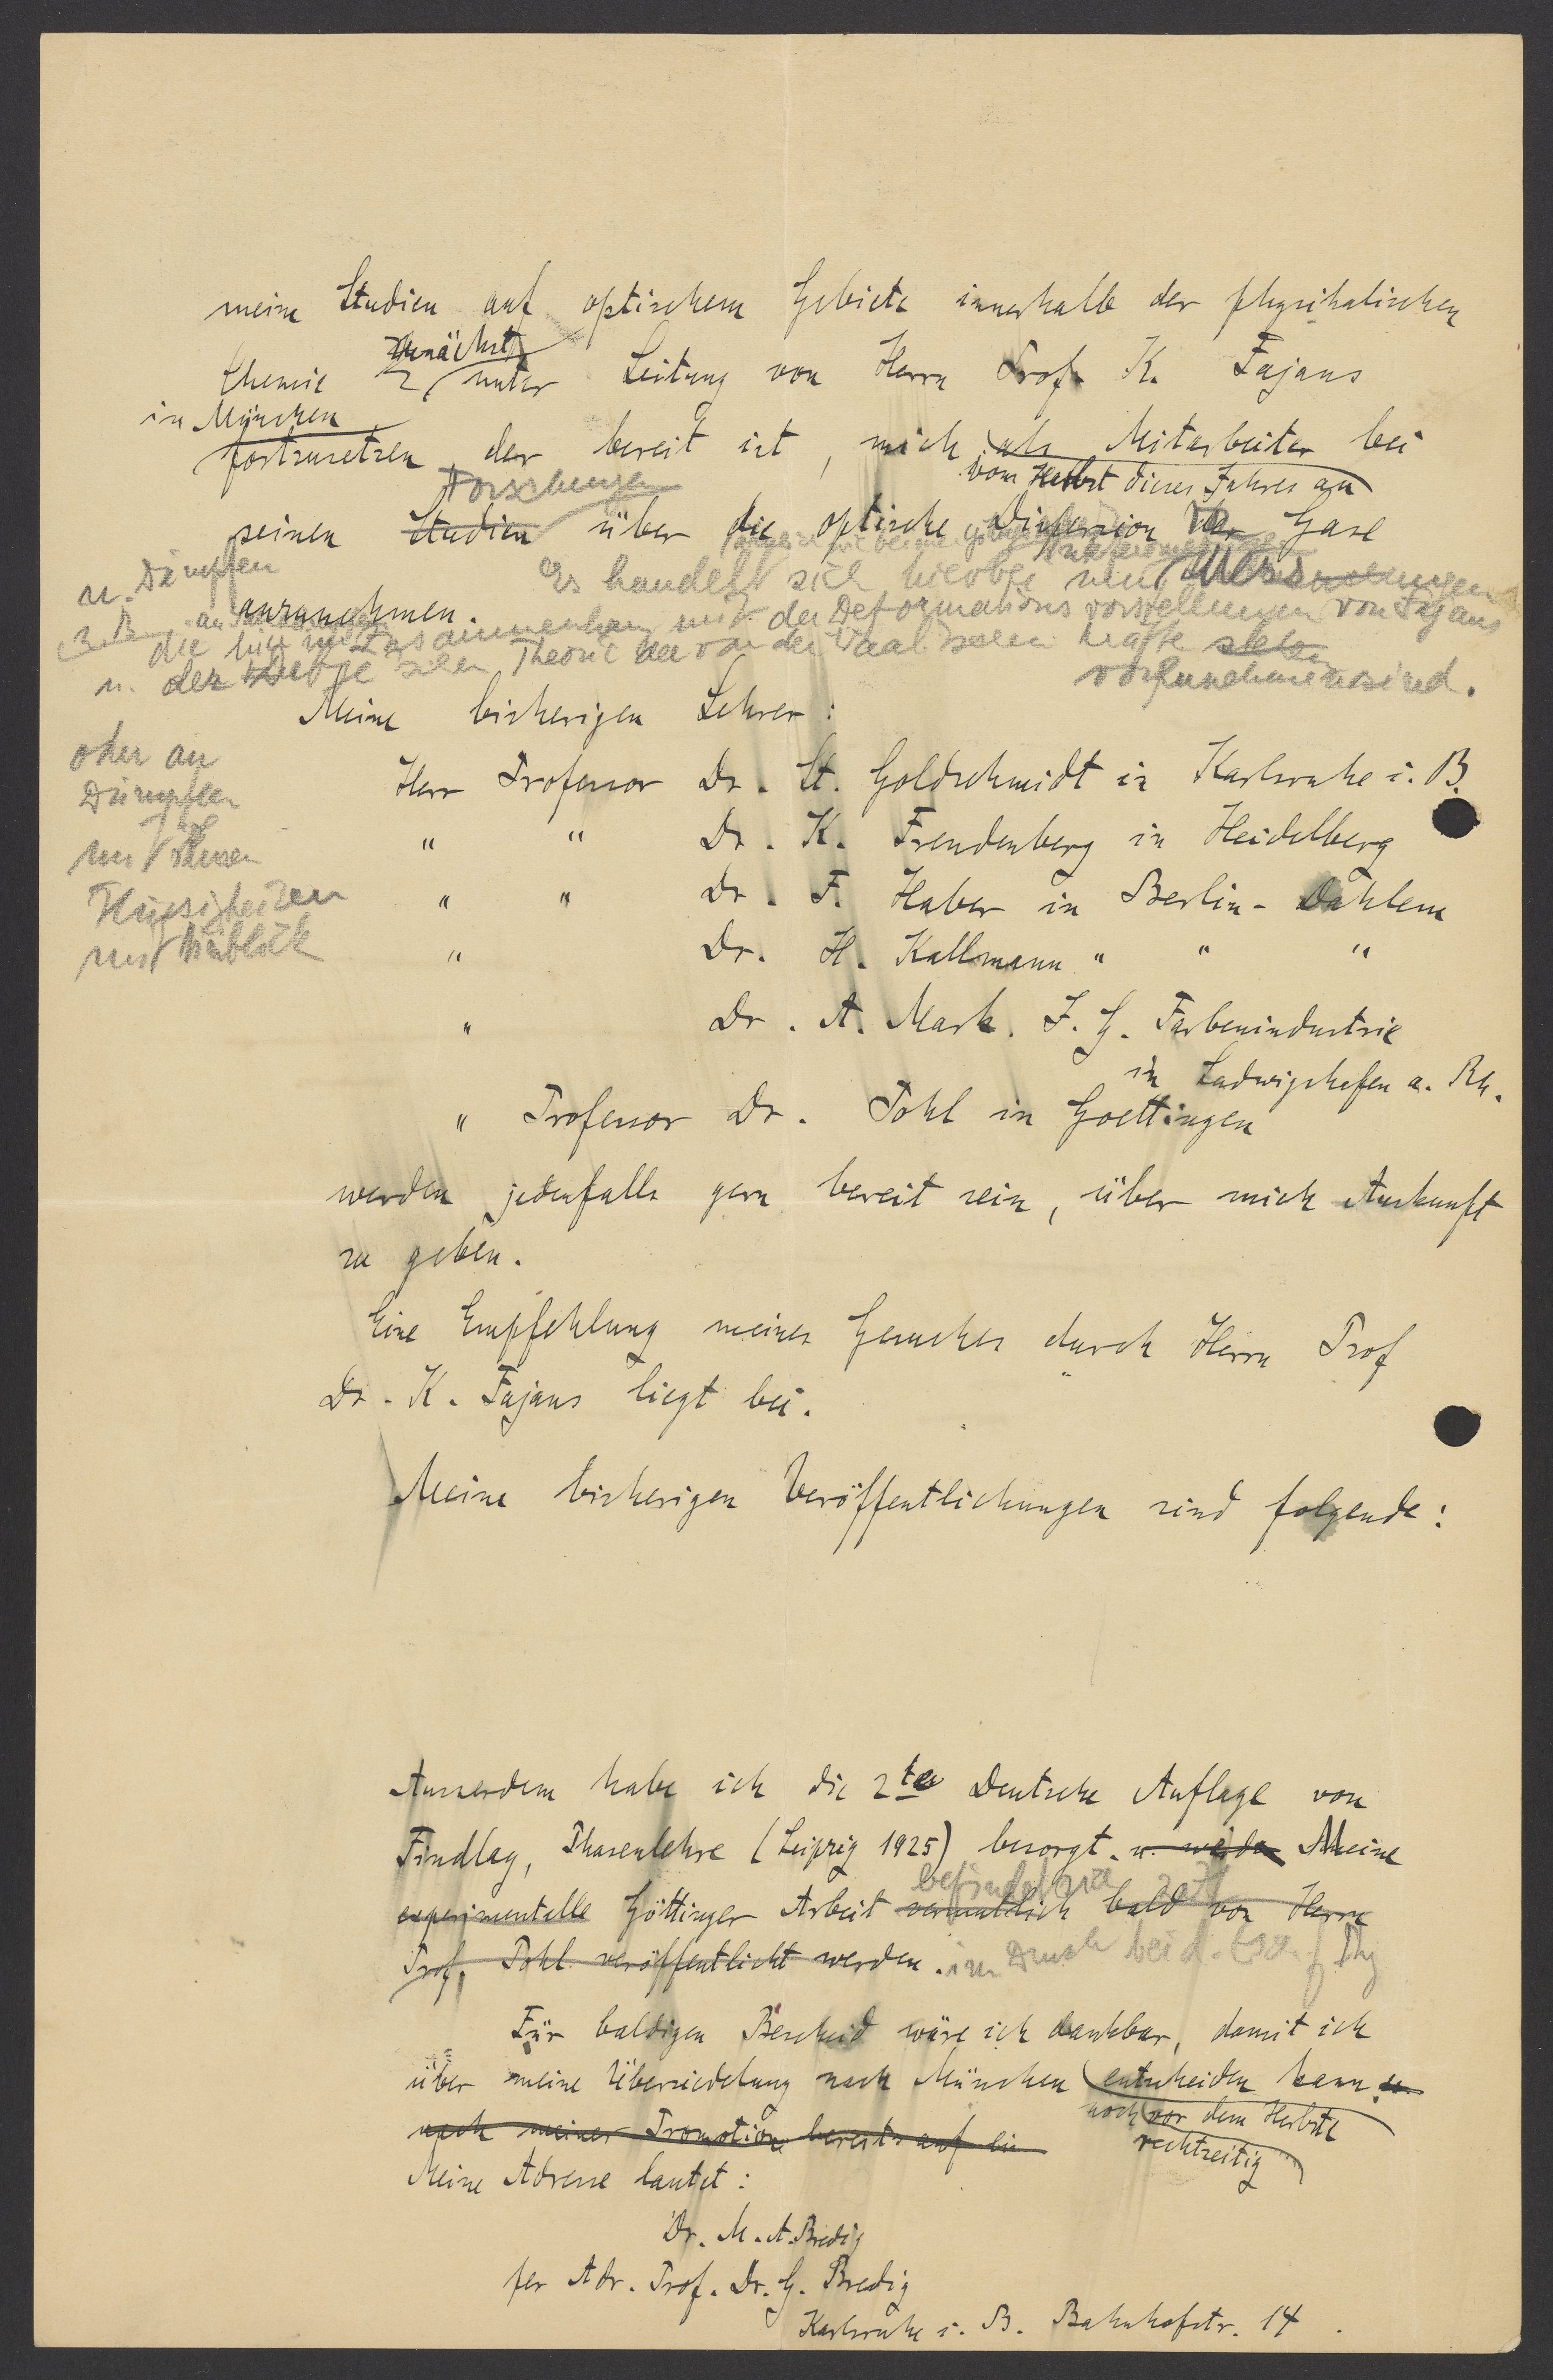 meine Studien auf optischem Gebiete innerhalb der physikalischen
zunächst
Chemie unter Leitung von Herrn Prof. K. Fajans
in München
fortzusetzen, der bereit ist, mich als Mitarbeiter bei
Forschungen vom Herbst dieses Jahres an
seinen Studien über die optische Dispersion der Gase
u. Dämpfen
Es handelt sich hierbei um
anzunehmen.
z. B. an
die hier im Zusammenhang mit der Deformationsvorstellungen von Fajans
u. der Debye'schen Theorie der van der Waals'schen Kräfte
vorzunehmen sind.
Meine bisherigen Lehrer:
oder an
Dämpfen
und
Flüssigkeiten
mit Hinblick
Herr Professor Dr. St. Goldschmidt in Karlsruhe i. B.
" " Dr. K. Freudenberg in Heidelberg
" " Dr. F. Haber in Berlin-Dahlem
" Dr. H. Kallmann " " "
" Dr. A. Mark. I. G. Farbenindustrie
in Ludwigshafen a. Rh.
" Professor Dr. Pohl in Goettingen
werden jedenfalls gern bereit sein, über mich Auskunft
zu geben.
Eine Empfehlung meines Gesuches durch Herrn Prof
Dr. K. Fajans liegt bei.
Meine bisherigen Veröffentlichungen sind folgende:
Ausserdem habe ich die 2te Deutsche Auflage von
Findlay, Phasenlehre (Leipzig 1925) besorgt. u. werde Meine
befindet sich zZt
experimentelle Göttinger Arbeit vermutlich bald von Herrn
Prof. Pohl veröffentlicht werden. im Druck bei d. f. Phy
Für baldigen Bescheid wäre ich dankbar, damit ich
über meine Übersiedelung nach München entscheiden kann u.
noch vor dem Herbste
nach meiner Promotion bereits auf
rechtzeitig
Meine Adresse lautet:
Dr. M. A. Bredig
per Adr. Prof. Dr. G. Bredig
Karlsruhe i. B. Bahnhofstr. 14.